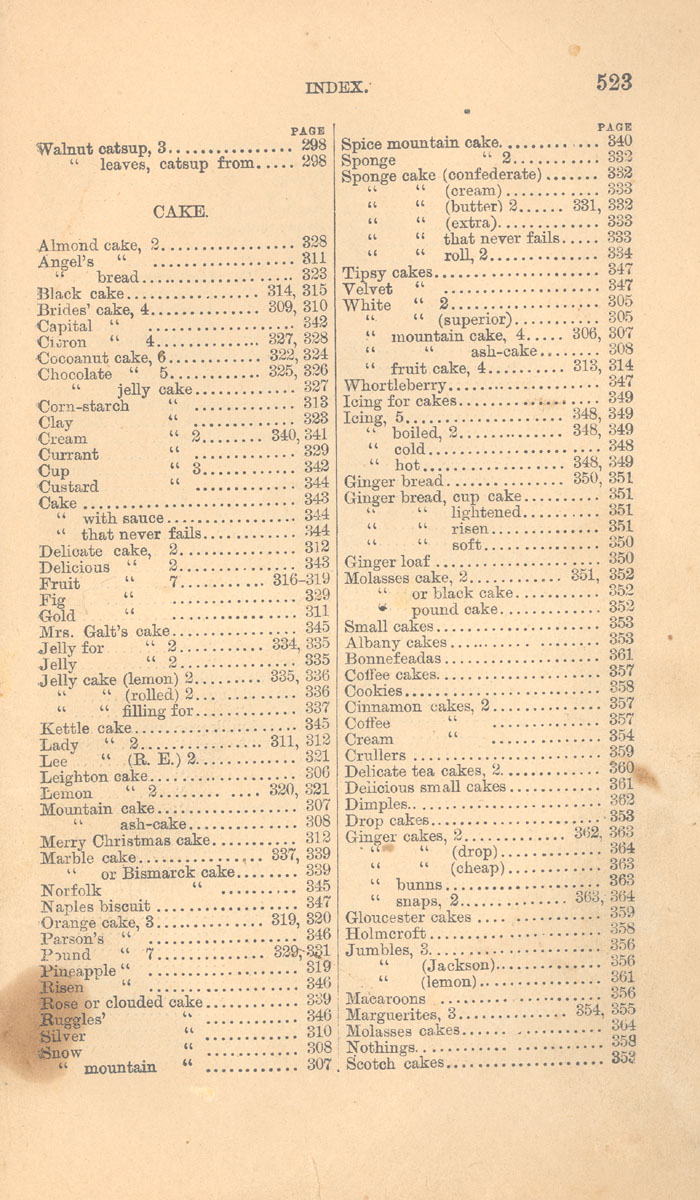 INDEX.
523
PAGE
Walnut catsup, 3 ................ 298
“ leaves, catsup from ..... 298
CAKE.
Almond cake, 2 ................. 328
Angel's “ .................. 311
“ bread ..................... 323
Black cake ................. 314, 315
Brides' cake, 4 ............... 309, 310
Capital “ .................... 342
Citron “ 4 .............. 327, 328
Cocoanut cake, 6 ............. 322, 324
Chocolate “ 5 ............. 325, 326
“ jelly cake ............. 327
Corn-starch “ ............. 313
Clay “ ................ 323
Cream “ 2 ......... 340, 341
Currant “ ............. 329
Cup “ 3 ............ 342
Custard “ ............. 344
Cake ........................... 343
“ with sauce ................. 344
“ that never fails ............ 344
Delicate cake, 2 ................ 312
Delicious “ 2 ................ 343
Fruit “ 7 .......... 316-319
Fig “ ................ 329
Gold “ ................ 311
Mrs. Galt's cake ................ 345
Jelly for “ 2 ............ 334, 335
Jelly “ 2 ............... 335
Jelly cake (lemon) 2 ......... 335, 336
“ “ (rolled) 2 ............. 336
“ “ filling for ............. 337
Kettle cake ..................... 345
Lady “ 2 ................ 311, 312
Lee “ (R. E.) 2 .............. 321
Leighton cake ................... 306
Lemon “ 2 ............. 320, 321
Mountain cake .................. 307
“ ash-cake .............. 308
Merry Christmas cake ........... 312
Marble cake ................ 337, 339
“ or Bismarck cake ........ 339
Norfolk “ .......... 345
Naples biscuit .................. 347
Orange cake, 3 .............. 319, 320
Parson's “ ................... 346
Pound “ 7 ............. 329, 331
Pineapple “ ................... 319
Risen “ ................... 346
Rose or clouded cake ............ 339
Ruggles' “ ............ 346
Silver “ ............ 310
Snow “ ............ 308
“ mountain “ ............ 307
PAGE
Spice mountain cake. ............ 340
Sponge “ 2 ........... 332
Sponge cake (confederate) ....... 332
“ “ (cream) ............ 333
“ “ (butter) 2 ...... 331, 332
“ “ (extra) ............. 333
“ “ that never fails ..... 333
“ “ roll, 2 .............. 334
Tipsy cakes ..................... 347
Velvet “ .................... 347
White “ 2 ................... 305
“ “ (superior) ........... 305
“ mountain cake, 4 ..... 306, 307
“ “ ash-cake ........ 308
“ fruit cake, 4 .......... 313, 314
Whortleberry ................... 347
Icing for cakes .................. 349
Icing, 5 .................... 348, 349
“ boiled, 2 .............. 348, 349
“ cold ..................... 348
“ hot .................. 348, 349
Ginger bread ................ 350, 351
Ginger bread, cup cake .......... 351
“ “ lightened .......... 351
“ “ risen .............. 351
“ “ soft ............... 350
Ginger loaf ..................... 350
Molasses cake, 2 ............ 351, 352
“ or black cake ........... 352
“ pound cake ............. 352
Small cakes ..................... 353
Albany cakes .................... 353
Bonnefeadas .................... 361
Coffee cakes ..................... 357
Cookies ......................... 358
Cinnamon cakes, 2 .............. 357
Coffee “ .............. 357
Cream “ .............. 354
Crullers ........................ 359
Delicate tea cakes, 2 ............ 360
Delicious small cakes ............ 361
Dimples ........................ 362
Drop cakes ..................... 353
Ginger cakes, 2 ............. 362, 363
“ “ (drop) ............. 364
“ “ (cheap) ............ 363
“ bunns .................... 363
“ snaps, 2 ............. 363, 364
Gloucester cakes ................ 359
Holmcroft ...................... 358
Jumbles, 3 ...................... 356
“ (Jackson) .............. 356
“ (lemon) ................ 361
Macaroons ..................... 356
Marguerites, 3 .............. 354, 355
Molasses cakes .................. 364
Nothings ....................... 358
Scotch cakes .................... 353